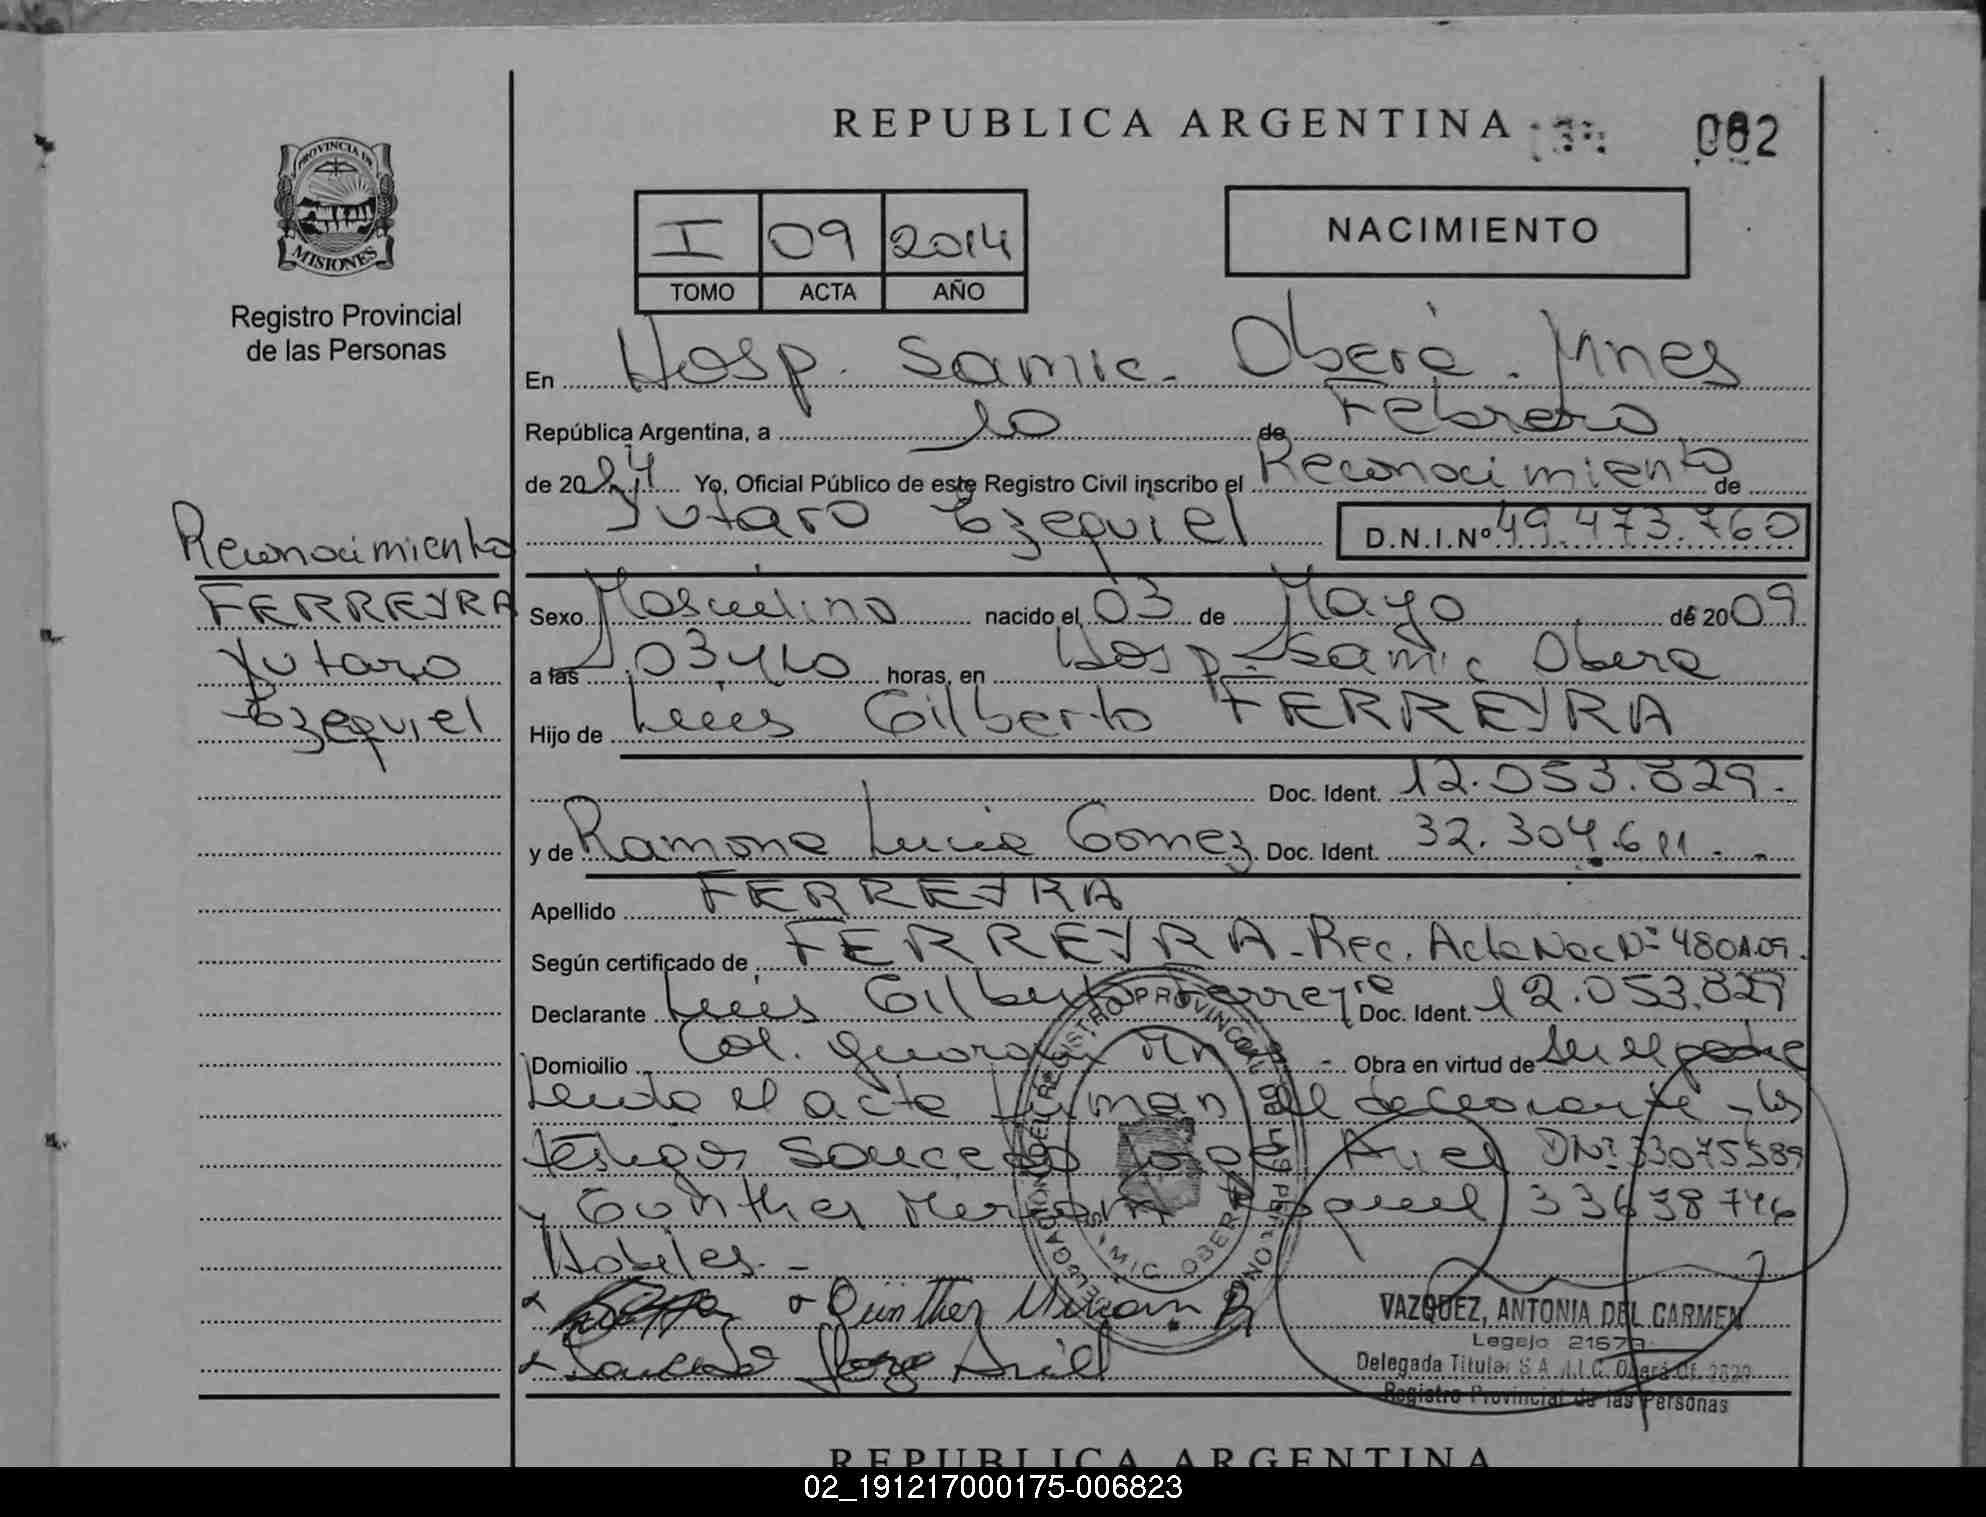 REPUBLICA ARGENTINA
002
PROVINCIA DE
MISIONES
Registro Provincial
de las Personas
I 09 2014
TOMO ACTA AÑO
NACIMIENTO
En Hosp. Samic. Oberá. Mnes
República Argentina, a 10 de Febrero
de 2014 Yo, Oficial Público de este Registro Civil inscribo el Reconocimiento de
Yutaro Ezequiel D.N.I.Nº 49.473.760
Reconocimiento
FERREYRA
Yutaro
Ezequiel
Sexo Masculino nacido el 03 de Mayo de 2009
a las 03,40 horas, en Hosp. Samic Obera
Hijo de Luis Gilberto FERREYRA
Doc. Ident. 12.053.829.
y de Ramona Lucia Gomez Doc. Ident. 32.304.611
Apellido FERREYRA
Según certificado de FERREYRA - Rec. Acta Nac Nº 480
Declarante Luis Gilberto Ferreyra Doc. Ident. 12.053.829
Domicilio Col. Guarani Mnes - Obra en virtud de ser el padre
Leida el acta firman el declarante y los
testigos Saucedo Jorge Ariel DNI 33075589
y Günther Miriam Raquel 33638746
Habiles. -
Günther Miriam R
Saucedo Jorge Ariel
DELEGACION DEL REGISTRO PROVINCIAL DE LAS PERSONAS
SAMIC OBERA
VAZQUEZ, ANTONIA DEL CARMEN
Legajo 21573
Delegada Titular S.A.M.I.C. Oberá Of. 2020
Registro Provincial de las Personas
REPUBLICA ARGENTINA
02_191217000175-006823